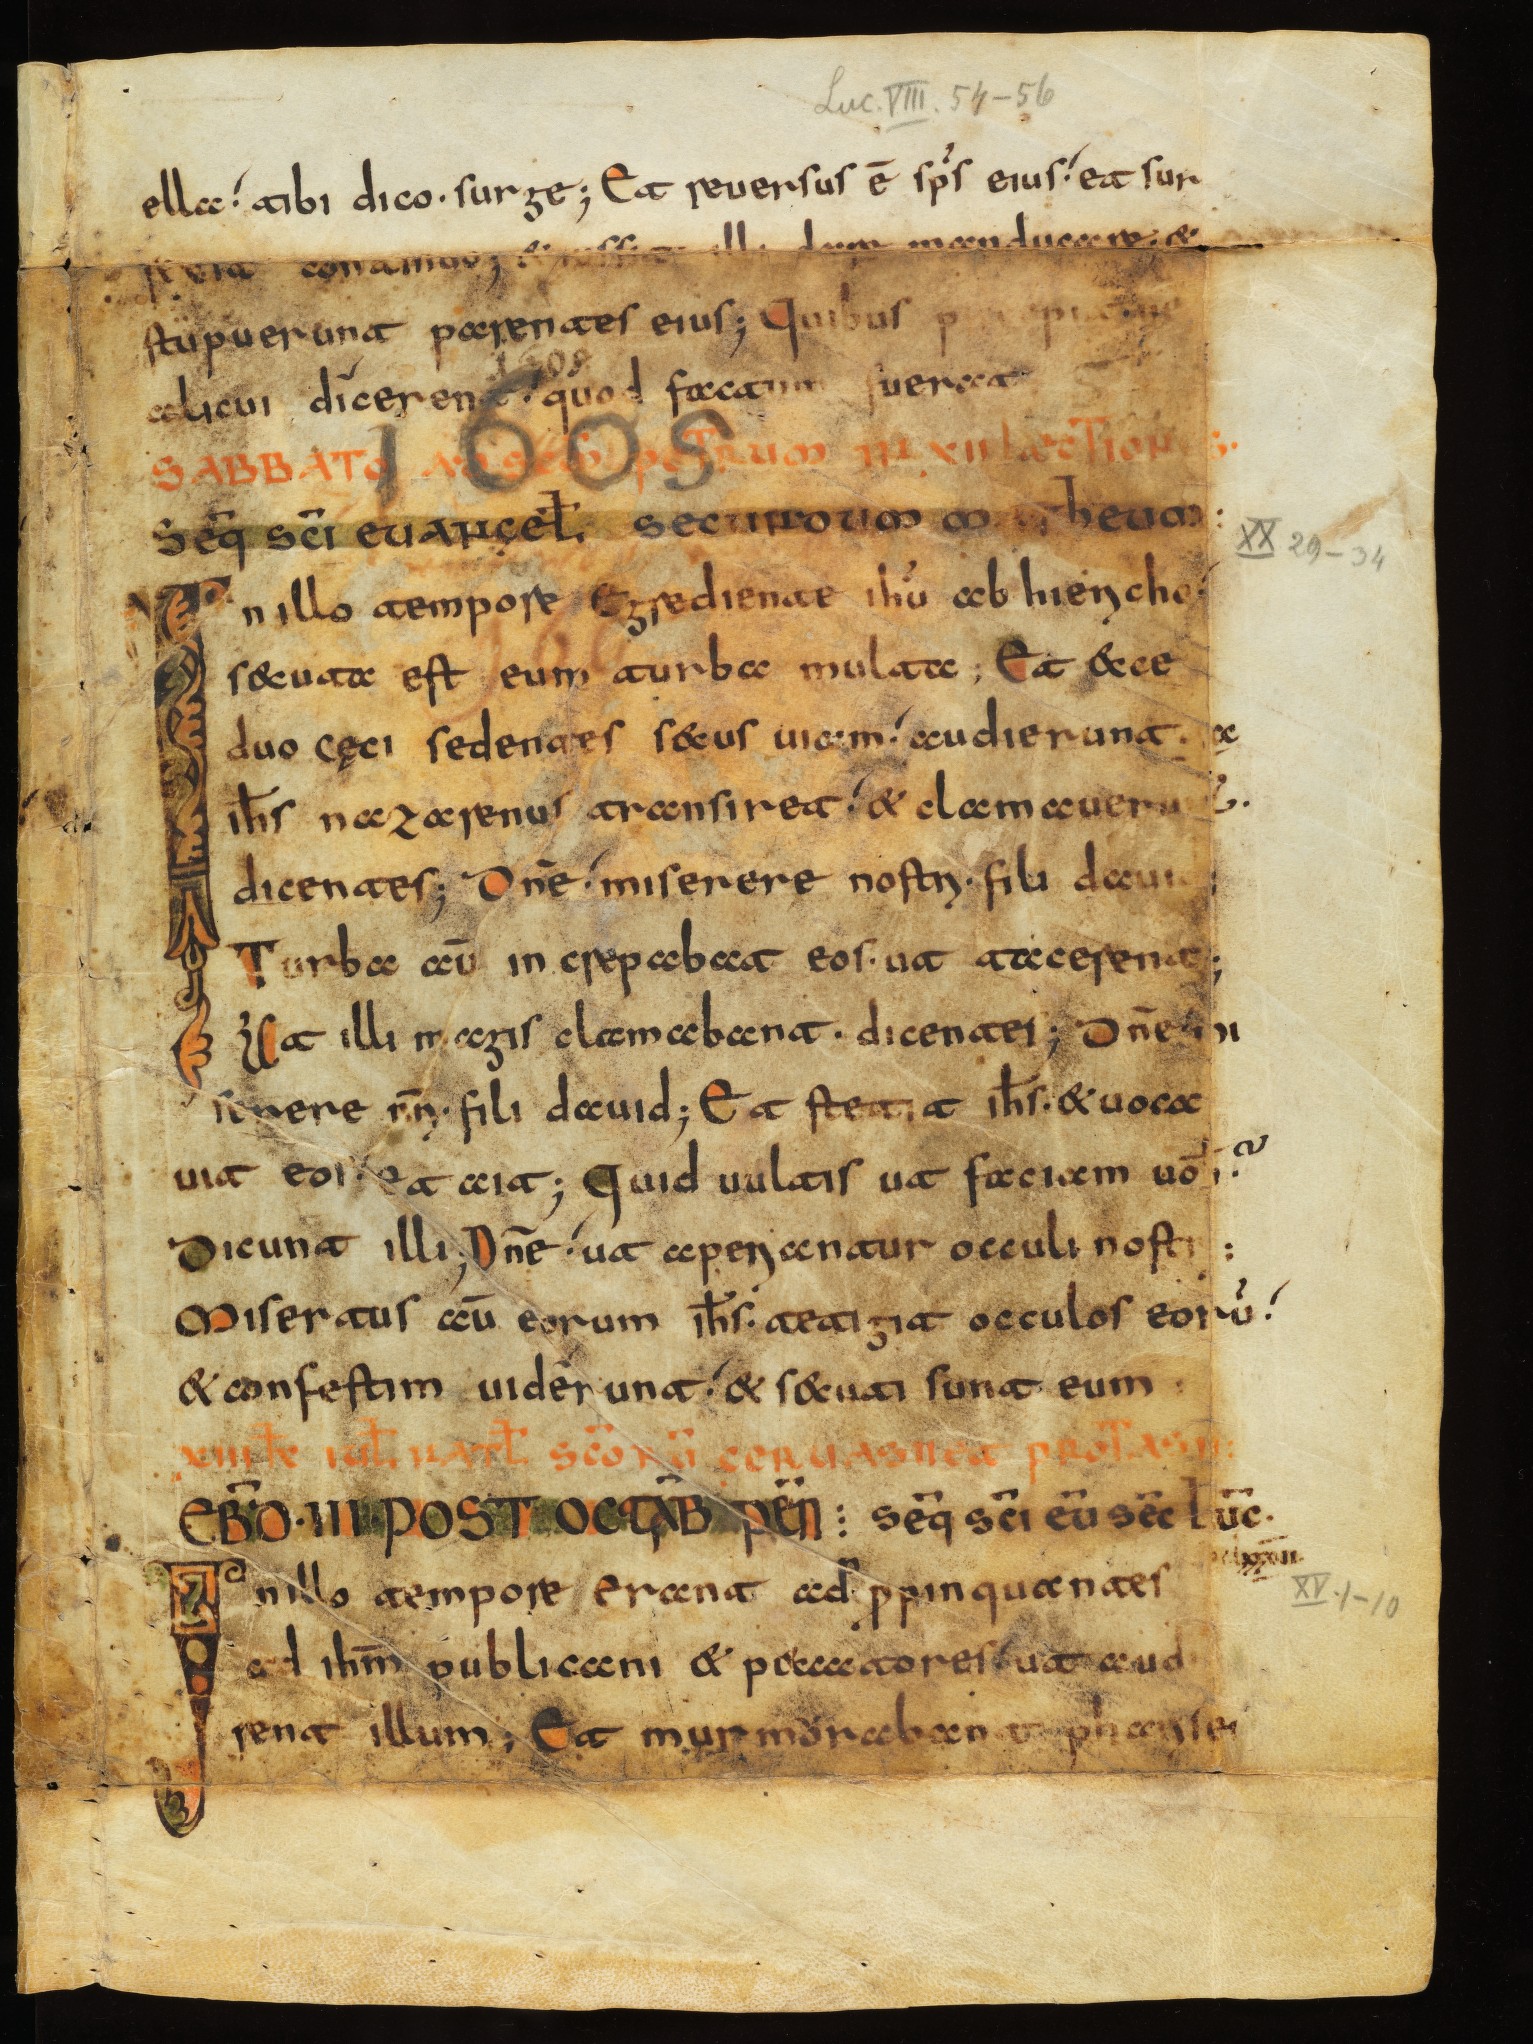 Luc. VIII. 54-56
ella! tibi dico. surge; Et reuersus ē sp̄s eius! et sur
rexit continuo; & iussit illi dari manducare; &
stupuerunt parentes eius; Quibus
1608
alicui dicerent! quod factum fuerat
1605
SABBATO AD SCM̄ PETRUM IN XII LECTIONES.
Seq̄ sc̄i euangel̄. secundum matheum:
XX 29-34
In illo tempore Egrediente ihū ab hiericho!
secuta est eum turba multa; Et ecce
duo cęci sedentes secus uiam! audierunt.
ih̄s nazarenus transiret! & clamauerunt.
dicentes; Dn̄e! miserere nostri. fili dauid;
Turba aū increpabat eos. ut tacerent;
At illi magis clamabant. dicentes; Dn̄e mi
serere n̄ri. fili dauid; Et stetit ih̄s. & uoca
uit eos. et ait; Quid uultis ut faciam uob̄?
Dicunt illi; Dn̄e! ut aperiantur occuli nostri:
Miseratus aū eorum ih̄s. tetigit occulos eorū!
& confestim uiderunt! & secuti sunt eum:
XIII k̄ iul̄. nat̄ sc̄orū geruasii et protasii:
EBD̄O. III. POST OCTAB̄ PEN̄: seq̄ sc̄i eū sec̄ lūc.
XV. 1-10
In illo tempore erant adppinquantes
ad ihm̄ publicani & peccatores ut audi
rent illum; Et murmorabant pharisei